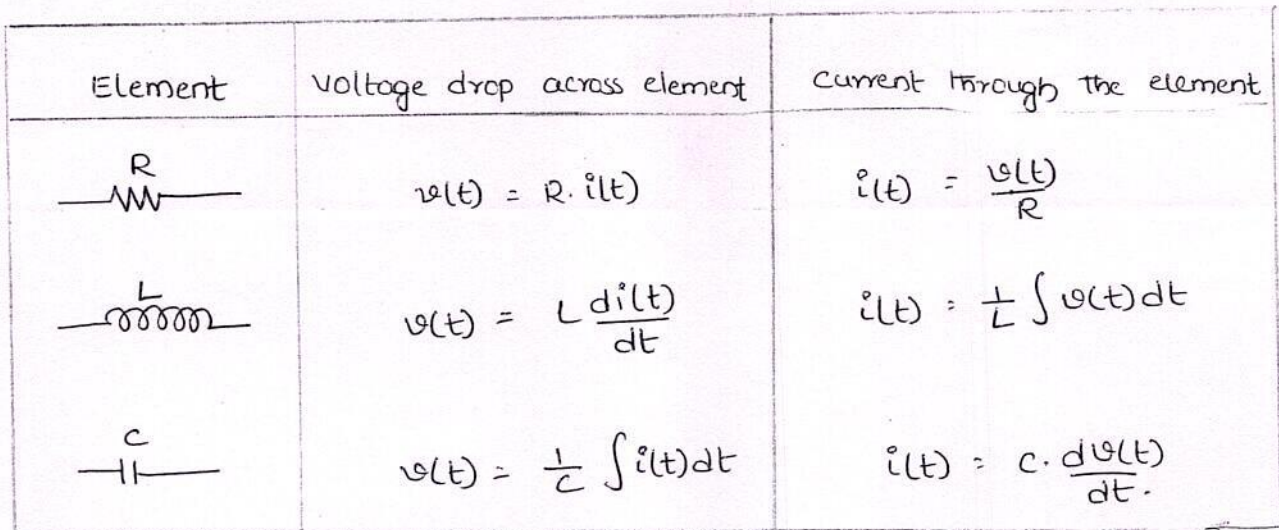 Element voltage drop across element current through the element
R
v(t) = R. i(t) i(t) = v(t)/R
L
v(t) = L di(t)/dt i(t) = 1/L ∫ v(t) dt
C
v(t) = 1/C ∫ i(t) dt i(t) = C. dv(t)/dt.